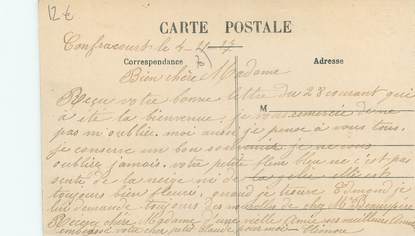 12 €
CARTE POSTALE
Confracourt le 4-
Correspondance
Adresse
Bien chère Madame
Reçu votre bonne lettre du 28 courant qui
M
à été la bienvenue; je vous remercie de ne
pas m'oublier. moi aussi je pense à vous tous,
je conserve un bon souvenir je ne vous
oubliez jamais. votre petite fleur bleu ne c'est pas
sentie de la neige ni de la gelée elle est
toujours bien fleurie. quand je trouve Edmond je
lui demande toujours des nouvelles de chez Mr
Reçu chère Madame d'une amie ses meilleurs
embrassé votre cher petit Claude pour moi